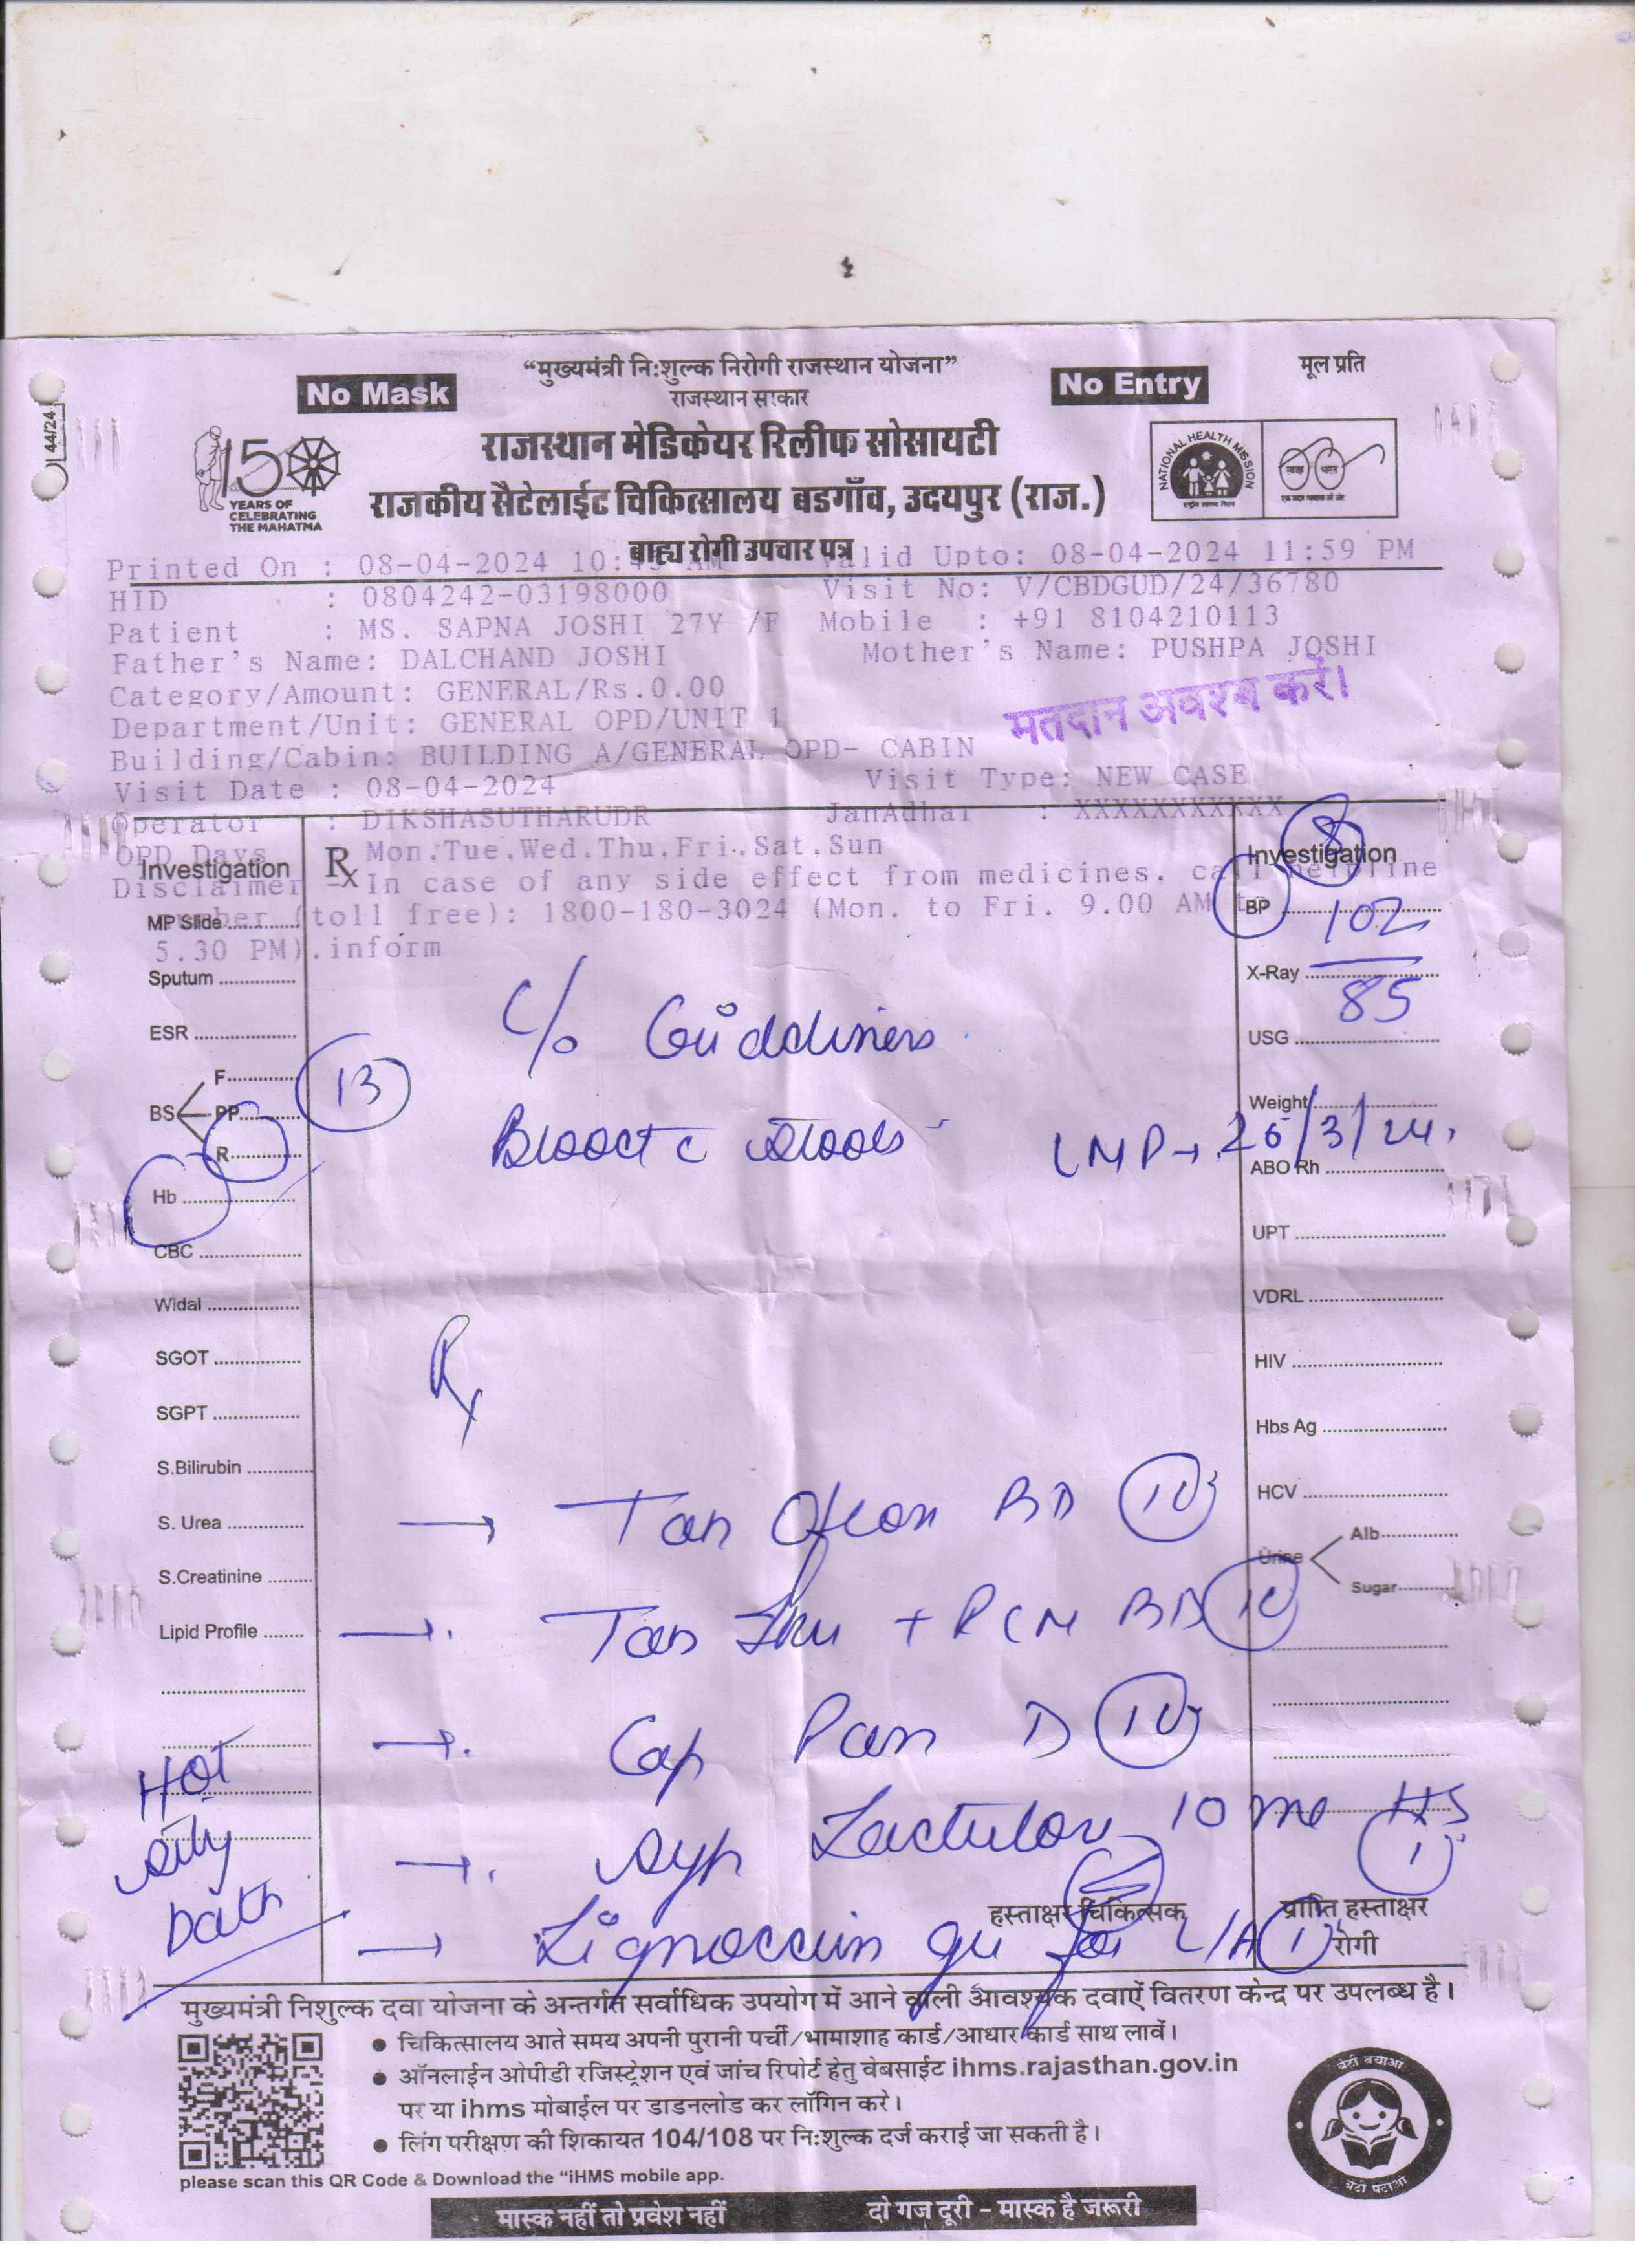 "मुख्यमंत्री निःशुल्क निरोगी राजस्थान योजना"
मूल प्रति
No Mask
राजस्थान सरकार
No Entry
44/24
राजस्थान मेडिकेयर रिलीफ सोसायटी
राजकीय सैटेलाईट चिकित्सालय बडगाँव, उदयपुर (राज.)
150 YEARS OF
CELEBRATING
THE MAHATMA
NATIONAL HEALTH MISSION
स्वच्छ भारत
एक कदम स्वच्छता की ओर
बाह्य रोगी उपचार पत्र
Printed On : 08-04-2024 10: AM Valid Upto: 08-04-2024 11:59 PM
HID : 0804242-03198000 Visit No: V/CBDGUD/24/36780
Patient : MS. SAPNA JOSHI 27Y /F Mobile : +91 8104210113
Father's Name: DALCHAND JOSHI Mother's Name: PUSHPA JOSHI
Category/Amount: GENERAL/Rs.0.00
मतदान अवश्य करें।
Department/Unit: GENERAL OPD/UNIT 1
Building/Cabin: BUILDING A/GENERAL OPD- CABIN
Visit Date : 08-04-2024 Visit Type: NEW CASE
Operator : DIKSHASUTHARUDR JanAdhar : XXXXXXXXXXX
OPD Days : Mon.Tue.Wed.Thu.Fri.Sat.Sun
Investigation Rx Investigation 8
Disclaimer : In case of any side effect from medicines. call helpline
number (toll free): 1800-180-3024 (Mon. to Fri. 9.00 AM to
5.30 PM).inform
MP Slide
BP 102
85
Sputum
X-Ray
C/o
ESR
USG
BS F
PP
R
13
Weight
LMP → 26/3/24.
Hb
ABO Rh
CBC
UPT
Widal
VDRL
Rx
SGOT
HIV
SGPT
Hbs Ag
S.Bilirubin
HCV
S. Urea
→ Tab Oflox BD 10
Urine Alb
Sugar
S.Creatinine
Lipid Profile
→ Tab + PCM BD 10
→ Cap Pan D 10
Hot
sitz
bath
→ Syp Lactulose 10 ml HS 1
हस्ताक्षर चिकित्सक
प्राप्ति हस्ताक्षर
रोगी
→ Lignocain gel for L/A 1
मुख्यमंत्री निशुल्क दवा योजना के अन्तर्गत सर्वाधिक उपयोग में आने वाली आवश्यक दवाऐं वितरण केन्द्र पर उपलब्ध है।
● चिकित्सालय आते समय अपनी पुरानी पर्ची/भामाशाह कार्ड/आधार कार्ड साथ लावें।
● ऑनलाईन ओपीडी रजिस्ट्रेशन एवं जांच रिपोर्ट हेतु वेबसाईट ihms.rajasthan.gov.in
पर या ihms मोबाईल पर डाडनलोड कर लॉगिन करे।
● लिंग परीक्षण की शिकायत 104/108 पर निःशुल्क दर्ज कराई जा सकती है।
please scan this QR Code & Download the "iHMS mobile app.
बेटी बचाओ
बेटी पढाओ
मास्क नहीं तो प्रवेश नहीं दो गज दूरी - मास्क है जरूरी